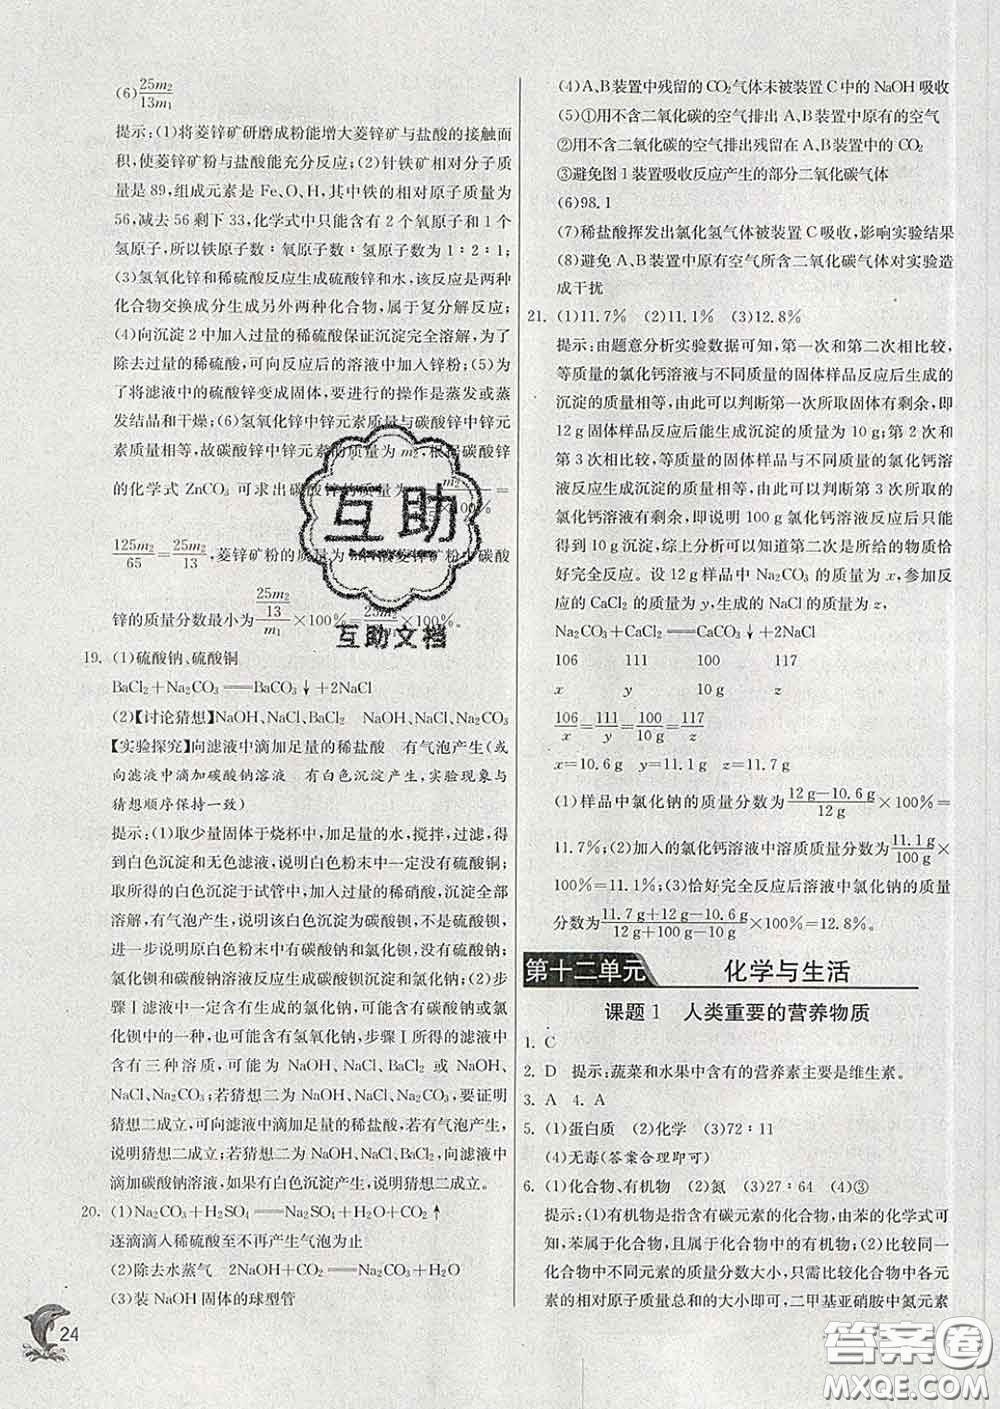 (6)25m₂/13m₁
提示:(1)将菱锌矿研磨成粉能增大菱锌矿与盐酸的接触面
积,使菱锌矿粉与盐酸能充分反应;(2)针铁矿相对分子质
量是 89,组成元素是 Fe、O、H,其中铁的相对原子质量为
56,减去 56 剩下 33,化学式中只能含有 2 个氧原子和 1 个
氢原子,所以铁原子数∶氧原子数∶氢原子数为 1∶2∶1;
(3)氢氧化锌和稀硫酸反应生成硫酸锌和水,该反应是两种
化合物交换成分生成另外两种化合物,属于复分解反应;
(4)向沉淀 2 中加入过量的稀硫酸保证沉淀完全溶解,为了
除去过量的稀硫酸,可向反应后的溶液中加入锌粉;(5)为
了将滤液中的硫酸锌变成固体,要进行的操作是蒸发或蒸
发结晶和干燥;(6)氢氧化锌中锌元素质量与碳酸锌中锌元
素质量相等,故碳酸锌中锌元素的质量为 m₂,根据碳酸锌
的化学式 ZnCO₃ 可求出碳酸锌的质量为 =
125m₂/65=25m₂/13,菱锌矿粉的质量为 菱锌矿粉中碳酸
锌的质量分数最小为 (25m₂/13)/m₁×100%= ×100%。
19. (1)硫酸钠、硫酸铜
BaCl₂+Na₂CO₃══BaCO₃↓+2NaCl
(2)【讨论猜想】NaOH、NaCl、BaCl₂ NaOH、NaCl、Na₂CO₃
【实验探究】向滤液中滴加足量的稀盐酸 有气泡产生(或
向滤液中滴加碳酸钠溶液 有白色沉淀产生,实验现象与
猜想顺序保持一致)
提示:(1)取少量固体于烧杯中,加足量的水,搅拌,过滤,得
到白色沉淀和无色滤液,说明白色粉末中一定没有硫酸铜;
取所得的白色沉淀于试管中,加入过量的稀硝酸,沉淀全部
溶解,有气泡产生,说明该白色沉淀为碳酸钡,不是硫酸钡,
进一步说明原白色粉末中有碳酸钠和氯化钡,没有硫酸钠;
氯化钡和碳酸钠溶液反应生成碳酸钡沉淀和氯化钠;(2)步
骤Ⅰ滤液中一定含有生成的氯化钠,可能含有碳酸钠或氯
化钡中的一种,也可能有氢氧化钠,步骤Ⅰ所得的滤液中
含有三种溶质,可能为 NaOH、NaCl、BaCl₂ 或 NaOH、
NaCl、Na₂CO₃;若猜想二为 NaOH、NaCl、Na₂CO₃,要证明
猜想二成立,可向滤液中滴加足量的稀盐酸,若有气泡产生,
说明猜想二成立;若猜想二为 NaOH、NaCl、BaCl₂,向滤液中
滴加碳酸钠溶液,如果有白色沉淀产生,说明猜想二成立。
20. (1)Na₂CO₃+H₂SO₄══Na₂SO₄+H₂O+CO₂↑
逐滴滴入稀硫酸至不再产生气泡为止
(2)除去水蒸气 2NaOH+CO₂══Na₂CO₃+H₂O
(3)装 NaOH 固体的球型管
24
(4)A、B装置中残留的 CO₂气体未被装置 C中的 NaOH 吸收
(5)①用不含二氧化碳的空气排出 A、B装置中原有的空气
②用不含二氧化碳的空气排出残留在 A、B装置中的 CO₂
③避免图 1 装置吸收反应产生的部分二氧化碳气体
(6)98.1
(7)稀盐酸挥发出氯化氢气体被装置 C 吸收,影响实验结果
(8)避免 A、B装置中原有空气所含二氧化碳气体对实验造
成干扰
21. (1)11.7% (2)11.1% (3)12.8%
提示:由题意分析实验数据可知,第一次和第二次相比较,
等质量的氯化钙溶液与不同质量的固体样品反应后生成的
沉淀的质量相等,由此可以判断第一次所取固体有剩余,即
12 g 固体样品反应后能生成沉淀的质量为 10 g;第 2 次和
第 3 次相比较,等质量的固体样品与不同质量的氯化钙溶
液反应生成沉淀的质量相等,可以判断第 3 次所取的
氯化钙溶液有剩余,即说明 100 g 氯化钙溶液反应后只能
得到 10 g 沉淀,综上分析可以知道第二次是所给的物质恰
好完全反应。设 12 g 样品中 Na₂CO₃ 的质量为 x,参加反
应的 CaCl₂ 的质量为 y,生成的 NaCl 的质量为 z,
Na₂CO₃+CaCl₂══CaCO₃↓+2NaCl
106 111 100 117
x y 10 g z
106/x=111/y=100/10 g=117/z
x=10.6 g y=11.1 g z=11.7 g
(1)样品中氯化钠的质量分数为 (12 g−10.6 g)/12 g×100%=
11.7%;(2)加入的氯化钙溶液中溶质质量分数为 11.1 g/100 g×
100%=11.1%;(3)恰好完全反应后溶液中氯化钠的质量
分数为 (11.7 g+12 g−10.6 g)/(12 g+100 g−10 g)×100%=12.8%。
第十二单元 化学与生活
课题 1 人类重要的营养物质
1. C
2. D 提示:蔬菜和水果中含有的营养素主要是维生素。
3. A 4. A
5. (1)蛋白质 (2)化学 (3)72∶11
(4)无毒(答案合理即可)
6. (1)化合物、有机物 (2)氮 (3)27∶64 (4)③
提示:(1)有机物是指含有碳元素的化合物,由苯的化学式可
知,苯属于化合物,且属于化合物中的有机物;(2)比较同一
化合物中不同元素的质量分数大小,只需比较化合物中各元
素的相对原子质量总和的大小即可,二甲基亚硝胺中氮元素
互助
互助文档
答案圈
MXQE.COM